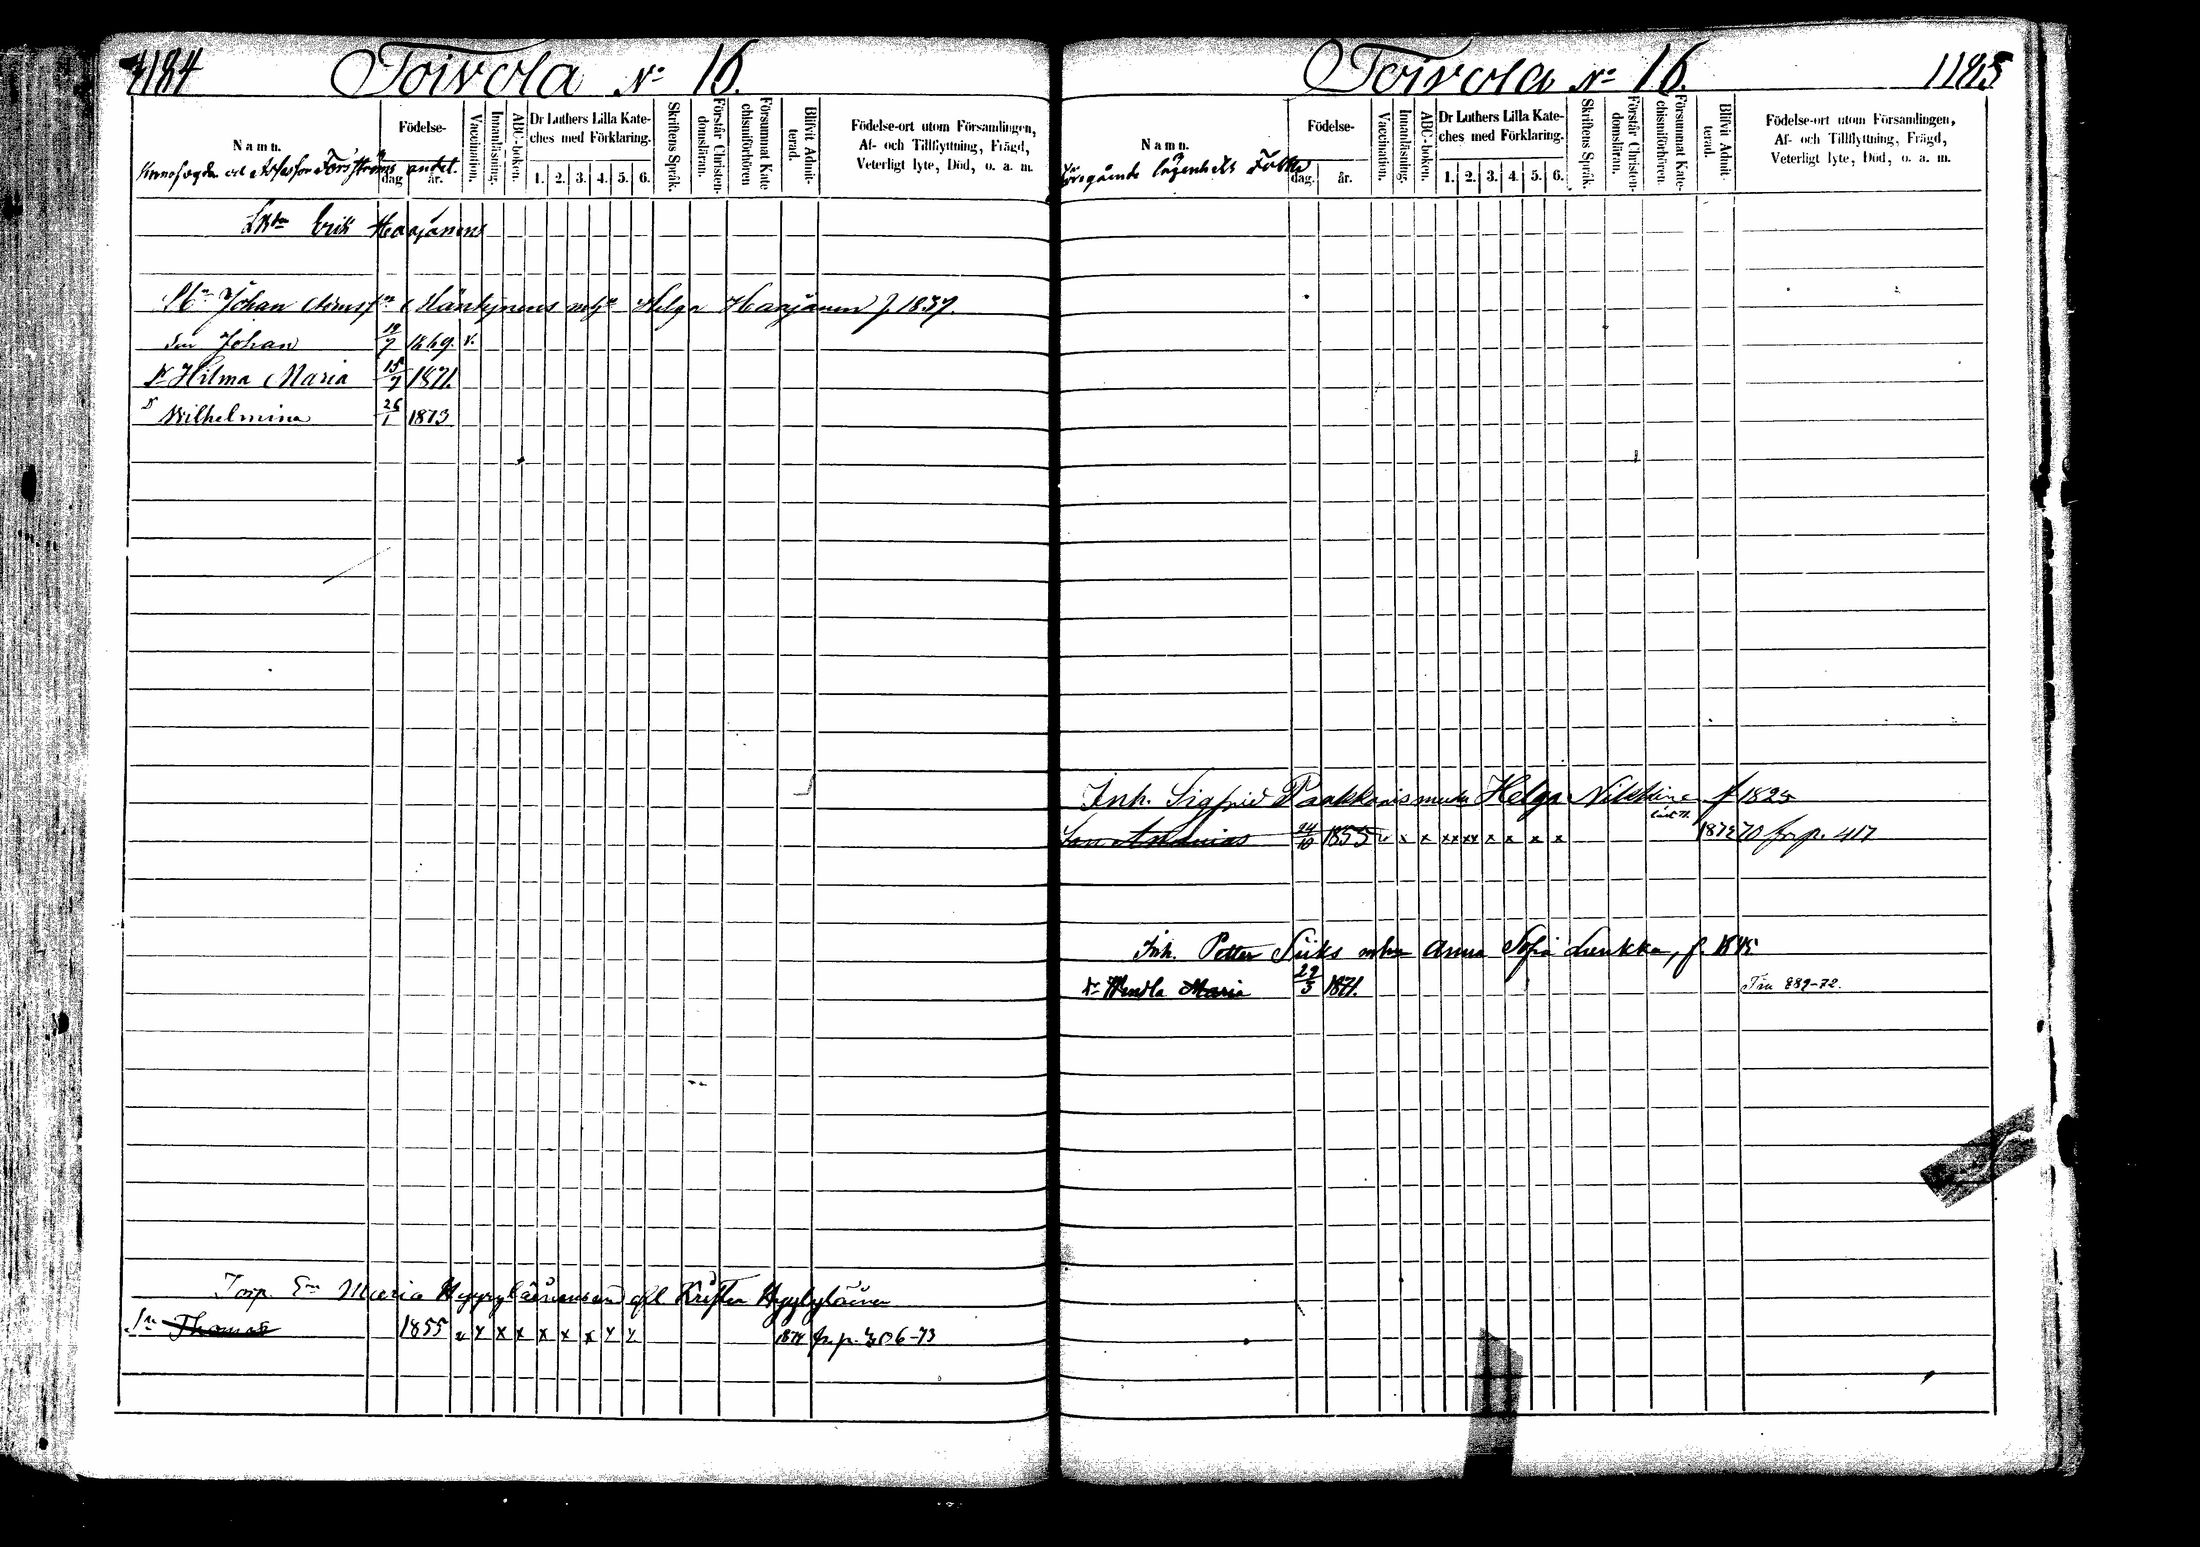 1184 Toivola No 16.
Namn.
Födelse-
dag
år.
Vaccination.
Innanläsning.
ABC-boken.
Dr Luthers Lilla Kate-
ches med Förklaring.
1. 2. 3. 4. 5. 6.
Skriftens Språk.
Förstår Christen-
domsläran.
Försummat Kate
chismiförhören
Blifvit Admit-
terad.
Födelse-ort utom Församlingen,
Af- och Tillflyttning, Frägd,
Veterligt lyte, Död, o. a. m.
Kronofogden och Assessor Forsströms andel.
Erik Haajanens
Johan Hänninens Helga Haajanen f. 1839.
Son Johan 19/7 1869. v.
Dr Hilma Maria 15/7 1871.
Dr Wilhelmina 26/1 1873
Torp. Maria Krister
Sn Thomas 1855 v x x x x x x x x 1874 fr. p. 406-73
Toivola No 16. 1185
Namn.
Födelse-
dag.
år.
Vaccination.
Innanläsning.
ABC-boken.
Dr Luthers Lilla Kate-
ches med Förklaring.
1. 2. 3. 4. 5. 6.
Skriftens Språk.
Förstår Christen-
domsläran.
Försummat Kate-
chismiförhören.
Blifvit Admit-
terad.
Födelse-ort utom Församlingen,
Af- och Tillflyttning, Frägd,
Veterligt lyte, Död, o. a. m.
Föregående lägenhets Folk
Inh. Sigfrid Paakkonis Helga f 1825
Son Ananias 24/10 1855 v x x xx xx x x x x 1872 70 fr. p. 417
Inh. Petter Siiks Anna Sofia Luukka, f. 1845
Dr Wendla Maria 29/3 1871. 889-72.